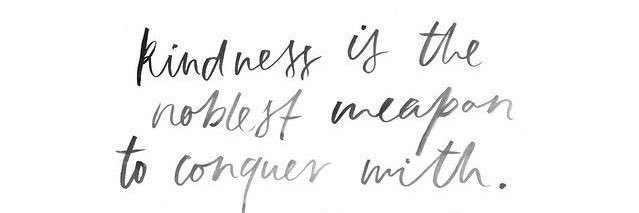 kindness is the
noblest weapon
to conquer with.